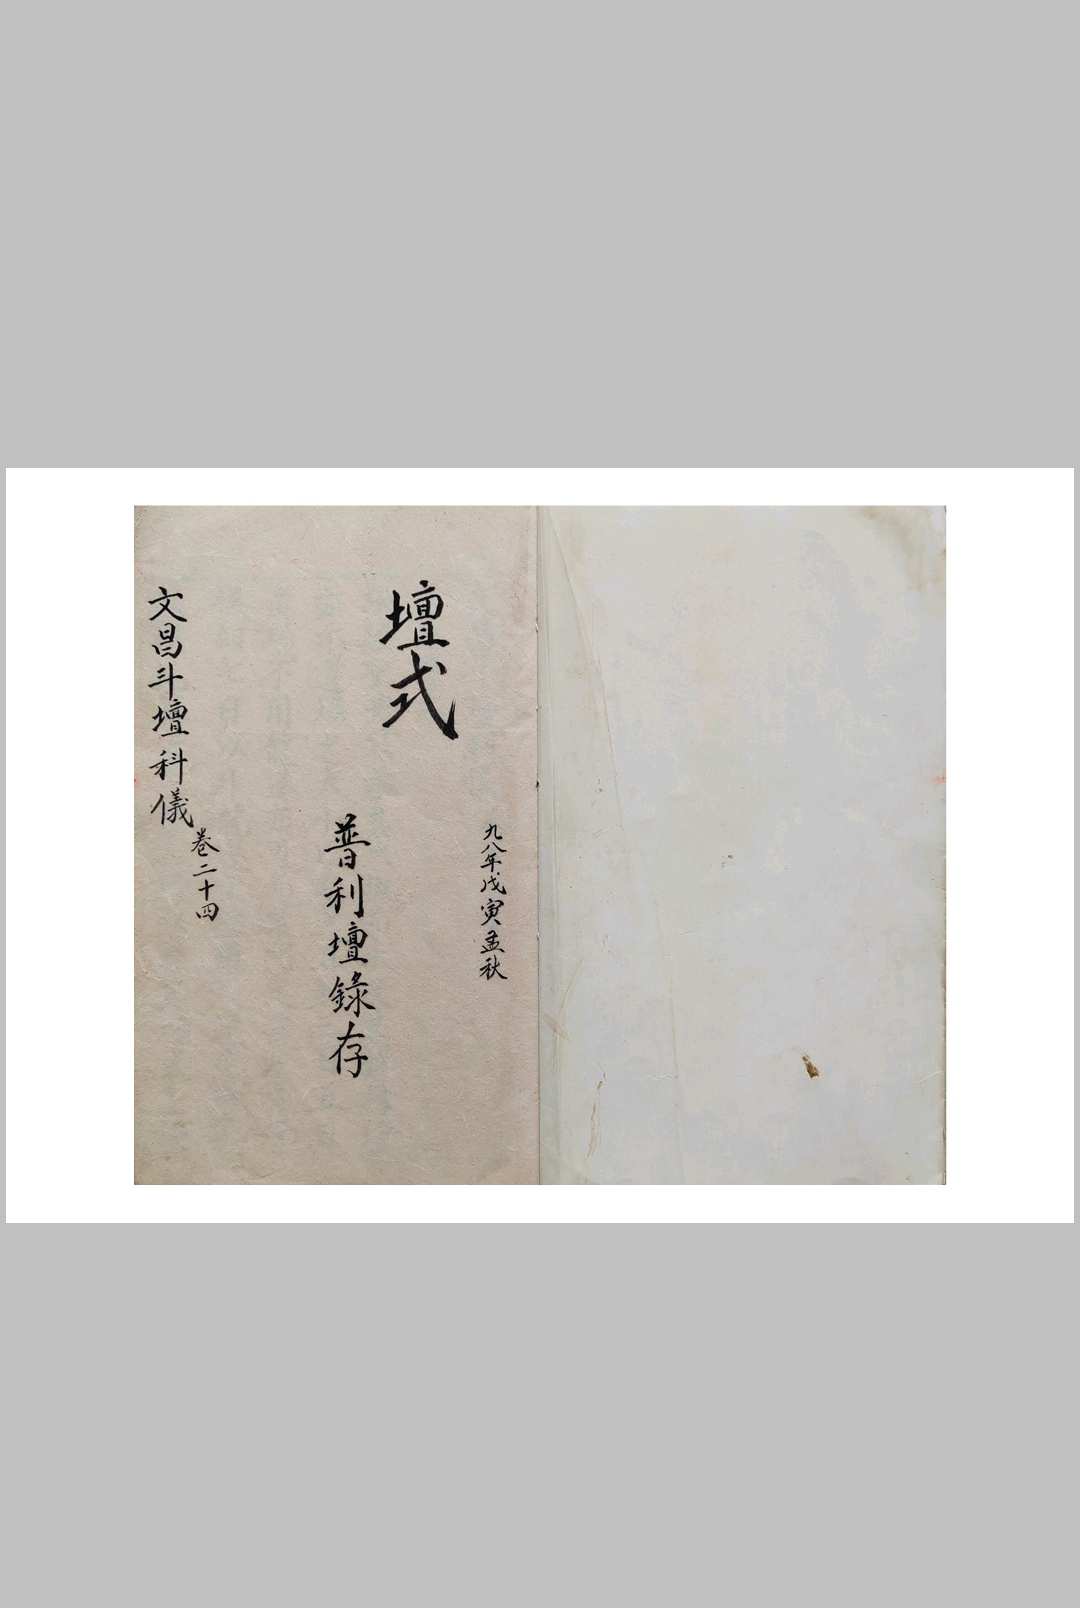 九八年戊寅孟秋
壇式
普利壇錄存
文昌斗壇科儀
卷二十四